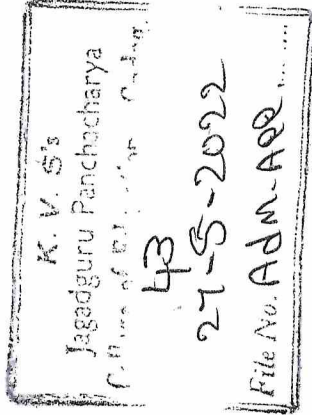 K. V. S's
Jagadguru Panchacharya
of
43
27-5-2022
File No. Adm-APP......